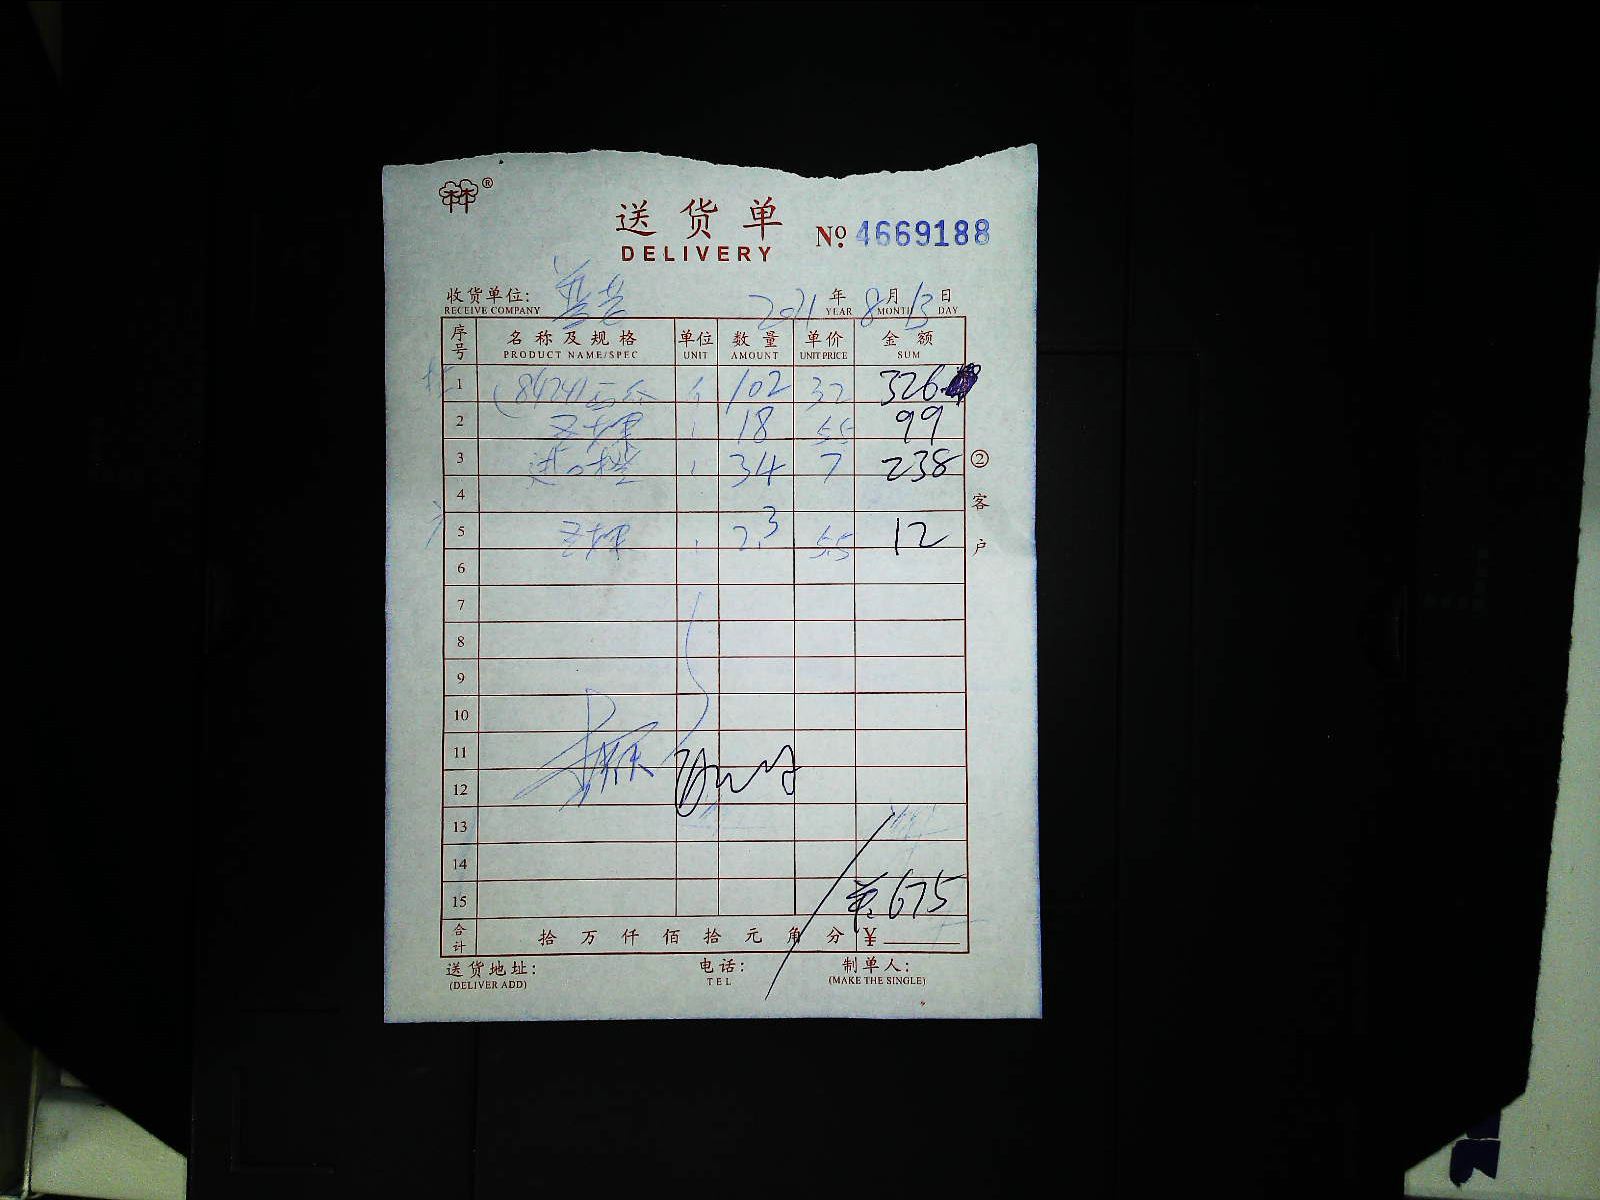 林®
送货单
DELIVERY
№ 4669188
收货单位:
RECEIVE COMPANY
2021 年 8 月 13 日
YEAR MONTH DAY
序号 名称及规格 单位 数量 单价 金额
PRODUCT NAME/SPEC UNIT AMOUNT UNIT PRICE SUM
1 (8424) 102 32 326
2 18 5.5 99
3 进口橙 34 7 238
4
5 2.3 5.5 12
6
7
8
9
10
11
12
13
14
15 675
合计 拾 万 仟 佰 拾 元 角 分 ¥
② 客户
送货地址: 电话: 制单人:
(DELIVER ADD) TEL (MAKE THE SINGLE)